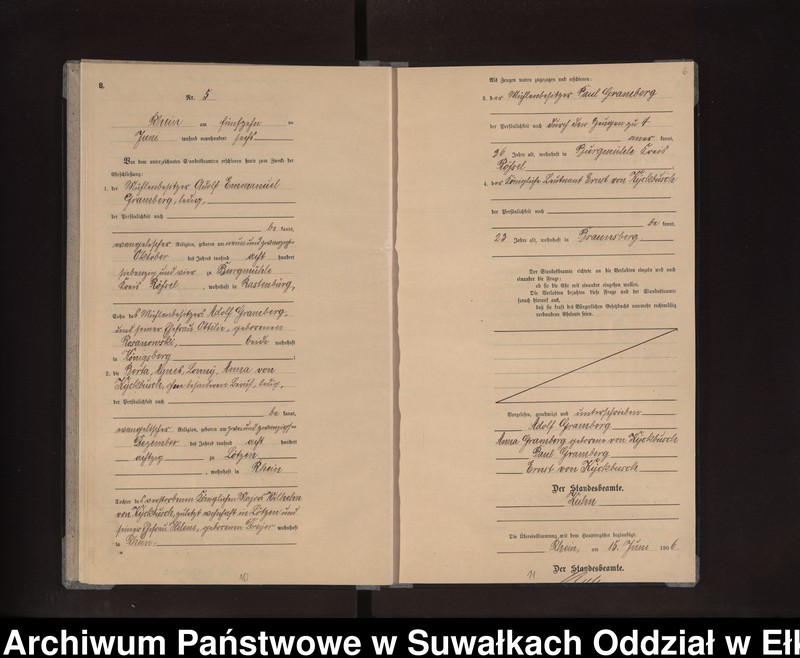 B.
Nr. 5
Rhein am fünfzehn ten
Juni tausend neunhundert sechs
Vor dem unterzeichneten Standesbeamten erschienen heute zum Zwecke der
Eheschließung:
1. der Mühlenbesitzer Adolf Emmanuel
Gramberg, ledig,
der Persönlichkeit nach
be kannt,
evangelischer Religion, geboren am neunundzwanzigsten
Oktober des Jahres tausend acht hundert
siebenzig und vier zu Burgmühle
Kreis Rößel, wohnhaft in Rastenburg,
Sohn des Mühlenbesitzers Adolf Gramberg
und seiner Ehefrau Ottilie, geborenen
Rosanowski, beide wohnhaft
in Königsberg;
2. die Berta, Agnes, Lonny, Anna von
Kÿckbusch, ohne besonderen Beruf, ledig,
der Persönlichkeit nach
be kannt,
evangelischer Religion, geboren am
Dezember des Jahres tausend acht hundert
achtzig zu Lötzen
, wohnhaft in Rhein
Tochter des verstorbenen Königlichen Majors Wilhelm
von Kÿckbusch, zuletzt wohnhaft in Lötzen und
seiner Ehefrau Helene, geborenen wohnhaft
in Rhein.
10
6
Als Zeugen waren zugezogen und erschienen:
3. der Mühlenbesitzer Paul Gramberg
der Persönlichkeit nach durch den Zeugen zu 4
aner kannt,
36 Jahre alt, wohnhaft in Burgmühle Kreis
Rößel
4. der Königliche Leutnant Ernst von Kÿckbusch
der Persönlichkeit nach
be kannt,
23 Jahre alt, wohnhaft in Braunsberg
Der Standesbeamte richtete an die Verlobten einzeln und nach
einander die Frage:
ob sie die Ehe mit einander eingehen wollen.
Die Verlobten bejahten diese Frage und der Standesbeamte
sprach hierauf aus,
daß sie kraft des Bürgerlichen Gesetzbuchs nunmehr rechtmäßig
verbundene Eheleute seien.
Vorgelesen, genehmigt und unterschrieben
Adolf Gramberg
Anna Gramberg geborene von Kÿckbusch
Paul Gramberg
Ernst von Kÿckbusch
Der Standesbeamte.
Kuhn
Die Übereinstimmung mit dem Hauptregister beglaubigt.
Rhein, am 15. Juni 1906.
Der Standesbeamte.
11
Archiwum Państwowe w Suwałkach Oddział w Ełk